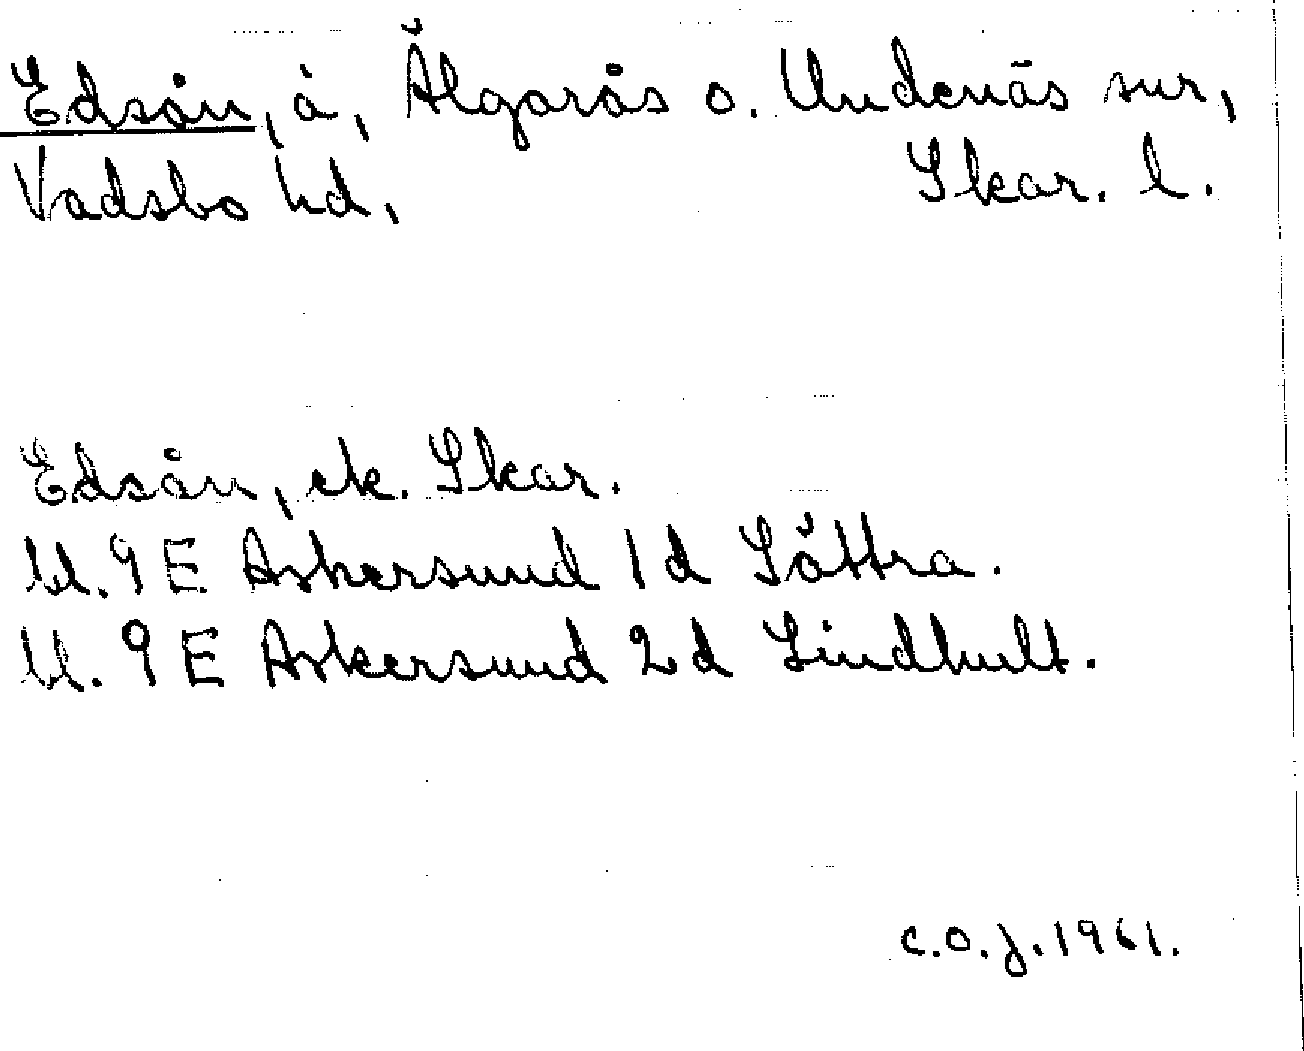 Edsån, å, Älgarås o. Undenäs snr,
Vadsbo hd. Skar. l.
Edsån, ek. Skar.
bl. 9 E Askersund 1 d Sättra.
bl. 9 E Askersund 2 d Lindhult.
C.O.J. 1961.